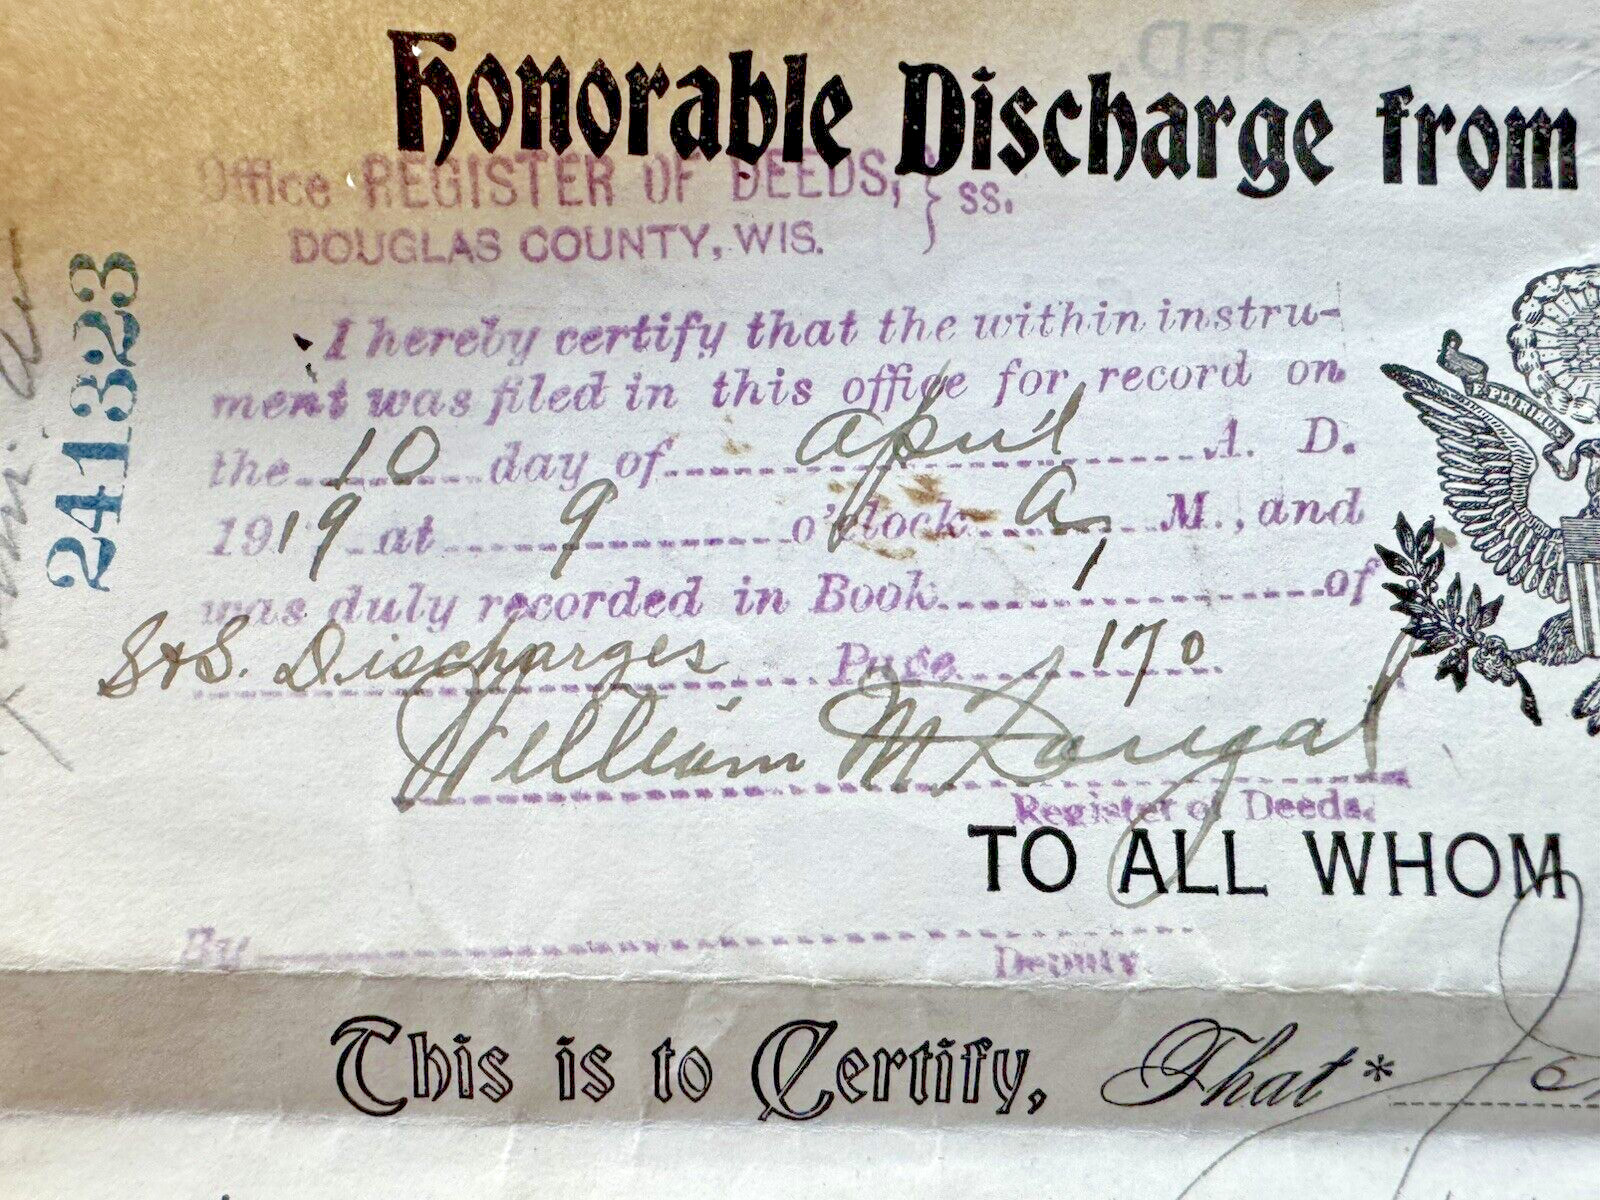 Honorable Discharge from
Office REGISTER OF DEEDS, } ss.
DOUGLAS COUNTY, WIS.
I hereby certify that the within instru-
ment was filed in this office for record on
the 10 day of April A. D.
1919 at 9 o'clock A M., and
was duly recorded in Book 1 of
S & S. Discharges Page 170
William McDougal
Register of Deeds.
TO ALL WHOM
By Deputy
This is to Certify, That*
241323
E PLURIBUS